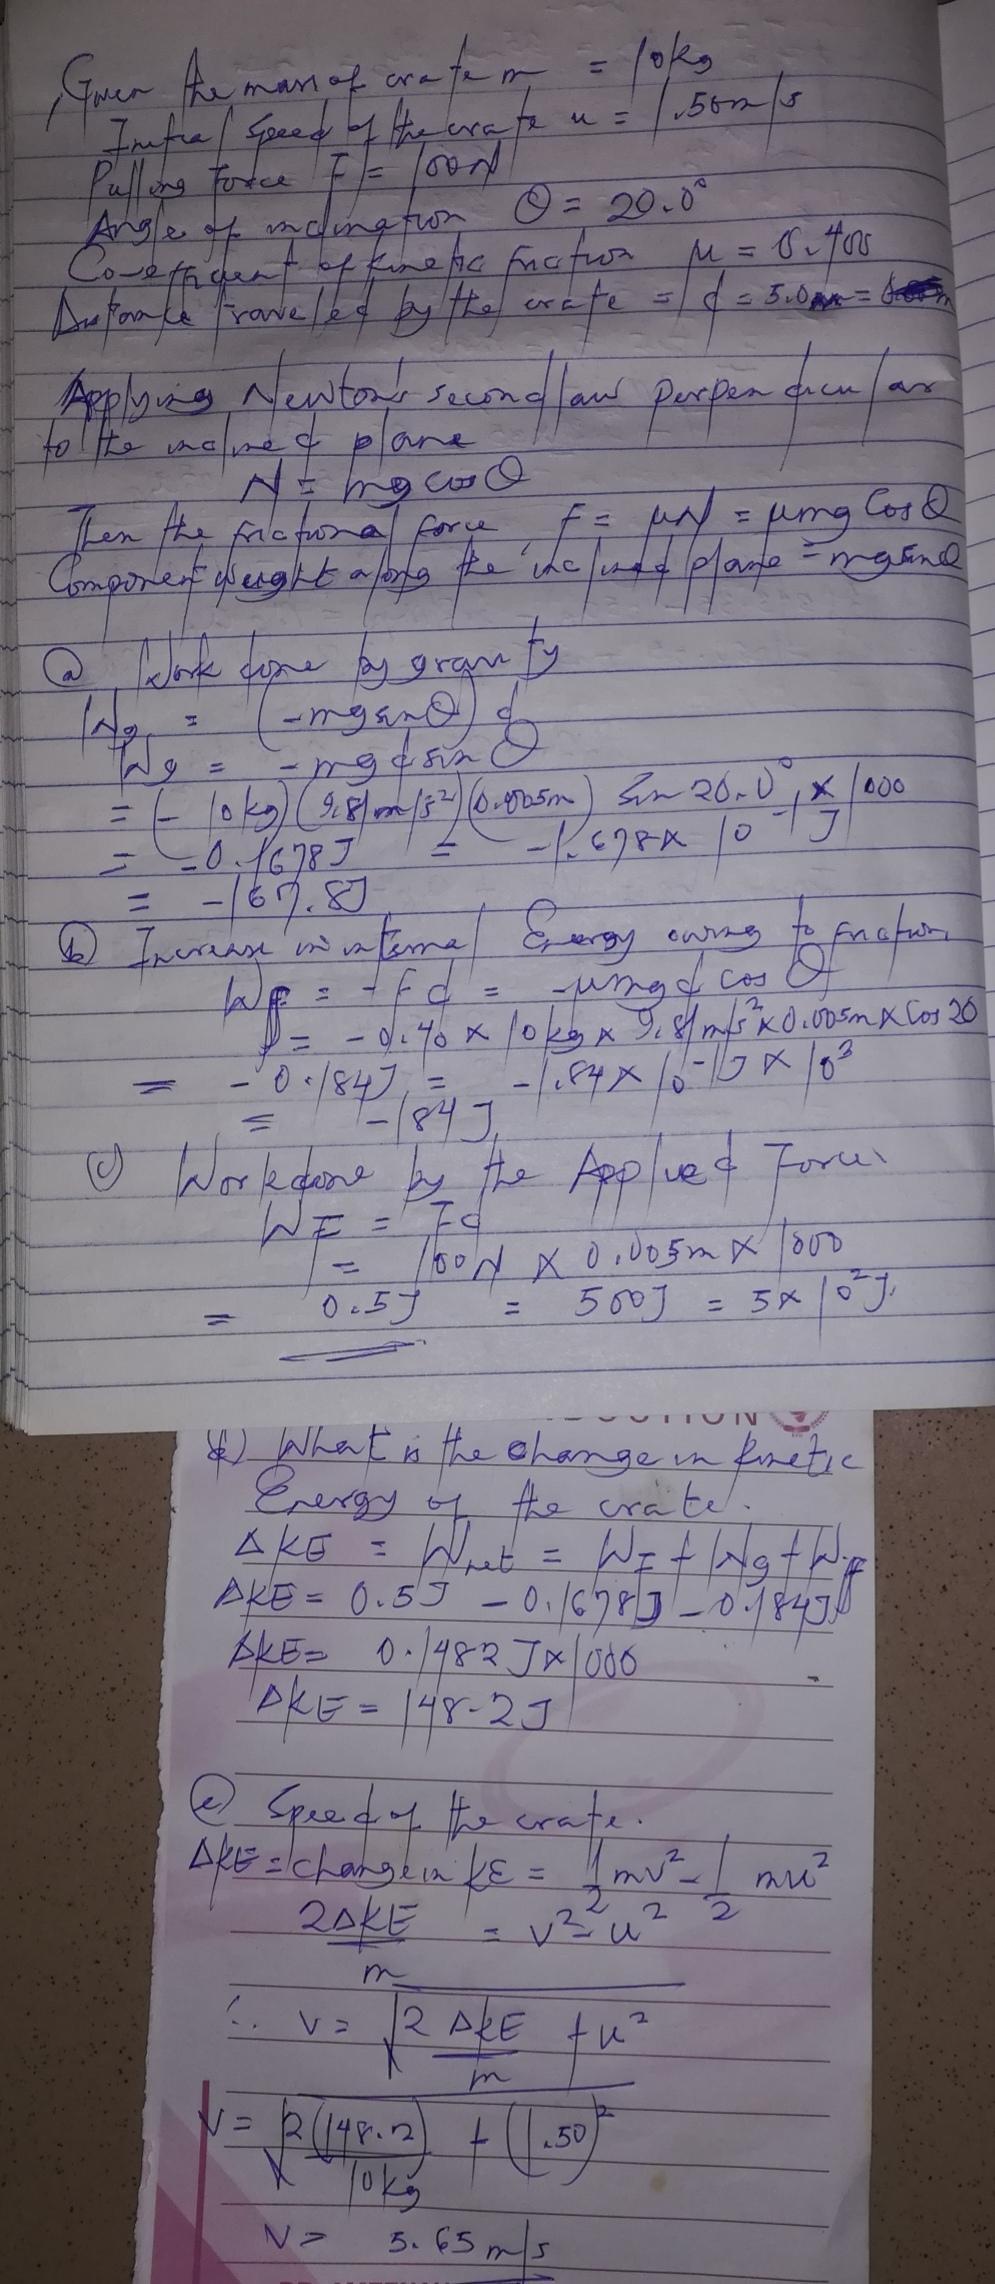 Given the mass of crate m = 10kg
Initial speed of the crate u = 1.50m/s
Pulling Force F = 100N
Angle of inclination θ = 20.0°
Co-efficient of kinetic friction μ = 0.400
Distance traveled by the crate = d = 5.0m =
Applying Newton's second law perpendicular
to the inclined plane
N = mg cosθ
Then the frictional force, f = μN = μmg Cosθ
Component weight along the inclined plane = mgsinθ
(a) Work done by gravity
Wg = (-mgsinθ) d
Wg = -mgd sin θ
= (-10kg)(9.81m/s²)(0.005m) Sin 20.0° × 1000
= -0.1678J = -1.678 × 10⁻¹ J
= -167.8J
(b) Increase in internal Energy owing to friction
Wf = -fd = -μmgd cos θ
= -0.40 × 10kg × 9.81m/s² × 0.005m × Cos 20
= -0.184J = -1.84 × 10⁻¹J × 10³
= -184J
(c) Workdone by the Applied Force.
WF = Fd
= 100N × 0.005m × 1000
= 0.5J = 500J = 5 × 10²J.
UCTION
d) What is the change in kinetic
Energy of the crate.
ΔKE = Wnet = WF + Wg + Wf
ΔKE = 0.5J - 0.1678J - 0.184J
ΔKE = 0.1482J × 1000
ΔKE = 148.2J
(e) Speed of the crate.
ΔKE = change in KE = 1/2 mv² - 1/2 mu²
2ΔKE/m = v² - u²
∴ v = √(2 ΔKE/m + u²)
V = √(2(148.2)/10kg + (1.50)²
V = 5.65 m/s